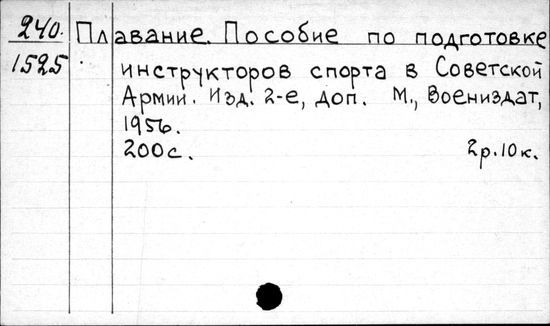 240. Плавание. Пособие по подготовке
1525 инструкторов спорта в Советской
Армии. Изд. 2-е, доп. М., Воениздат,
1956.
200с. 2р.10к.